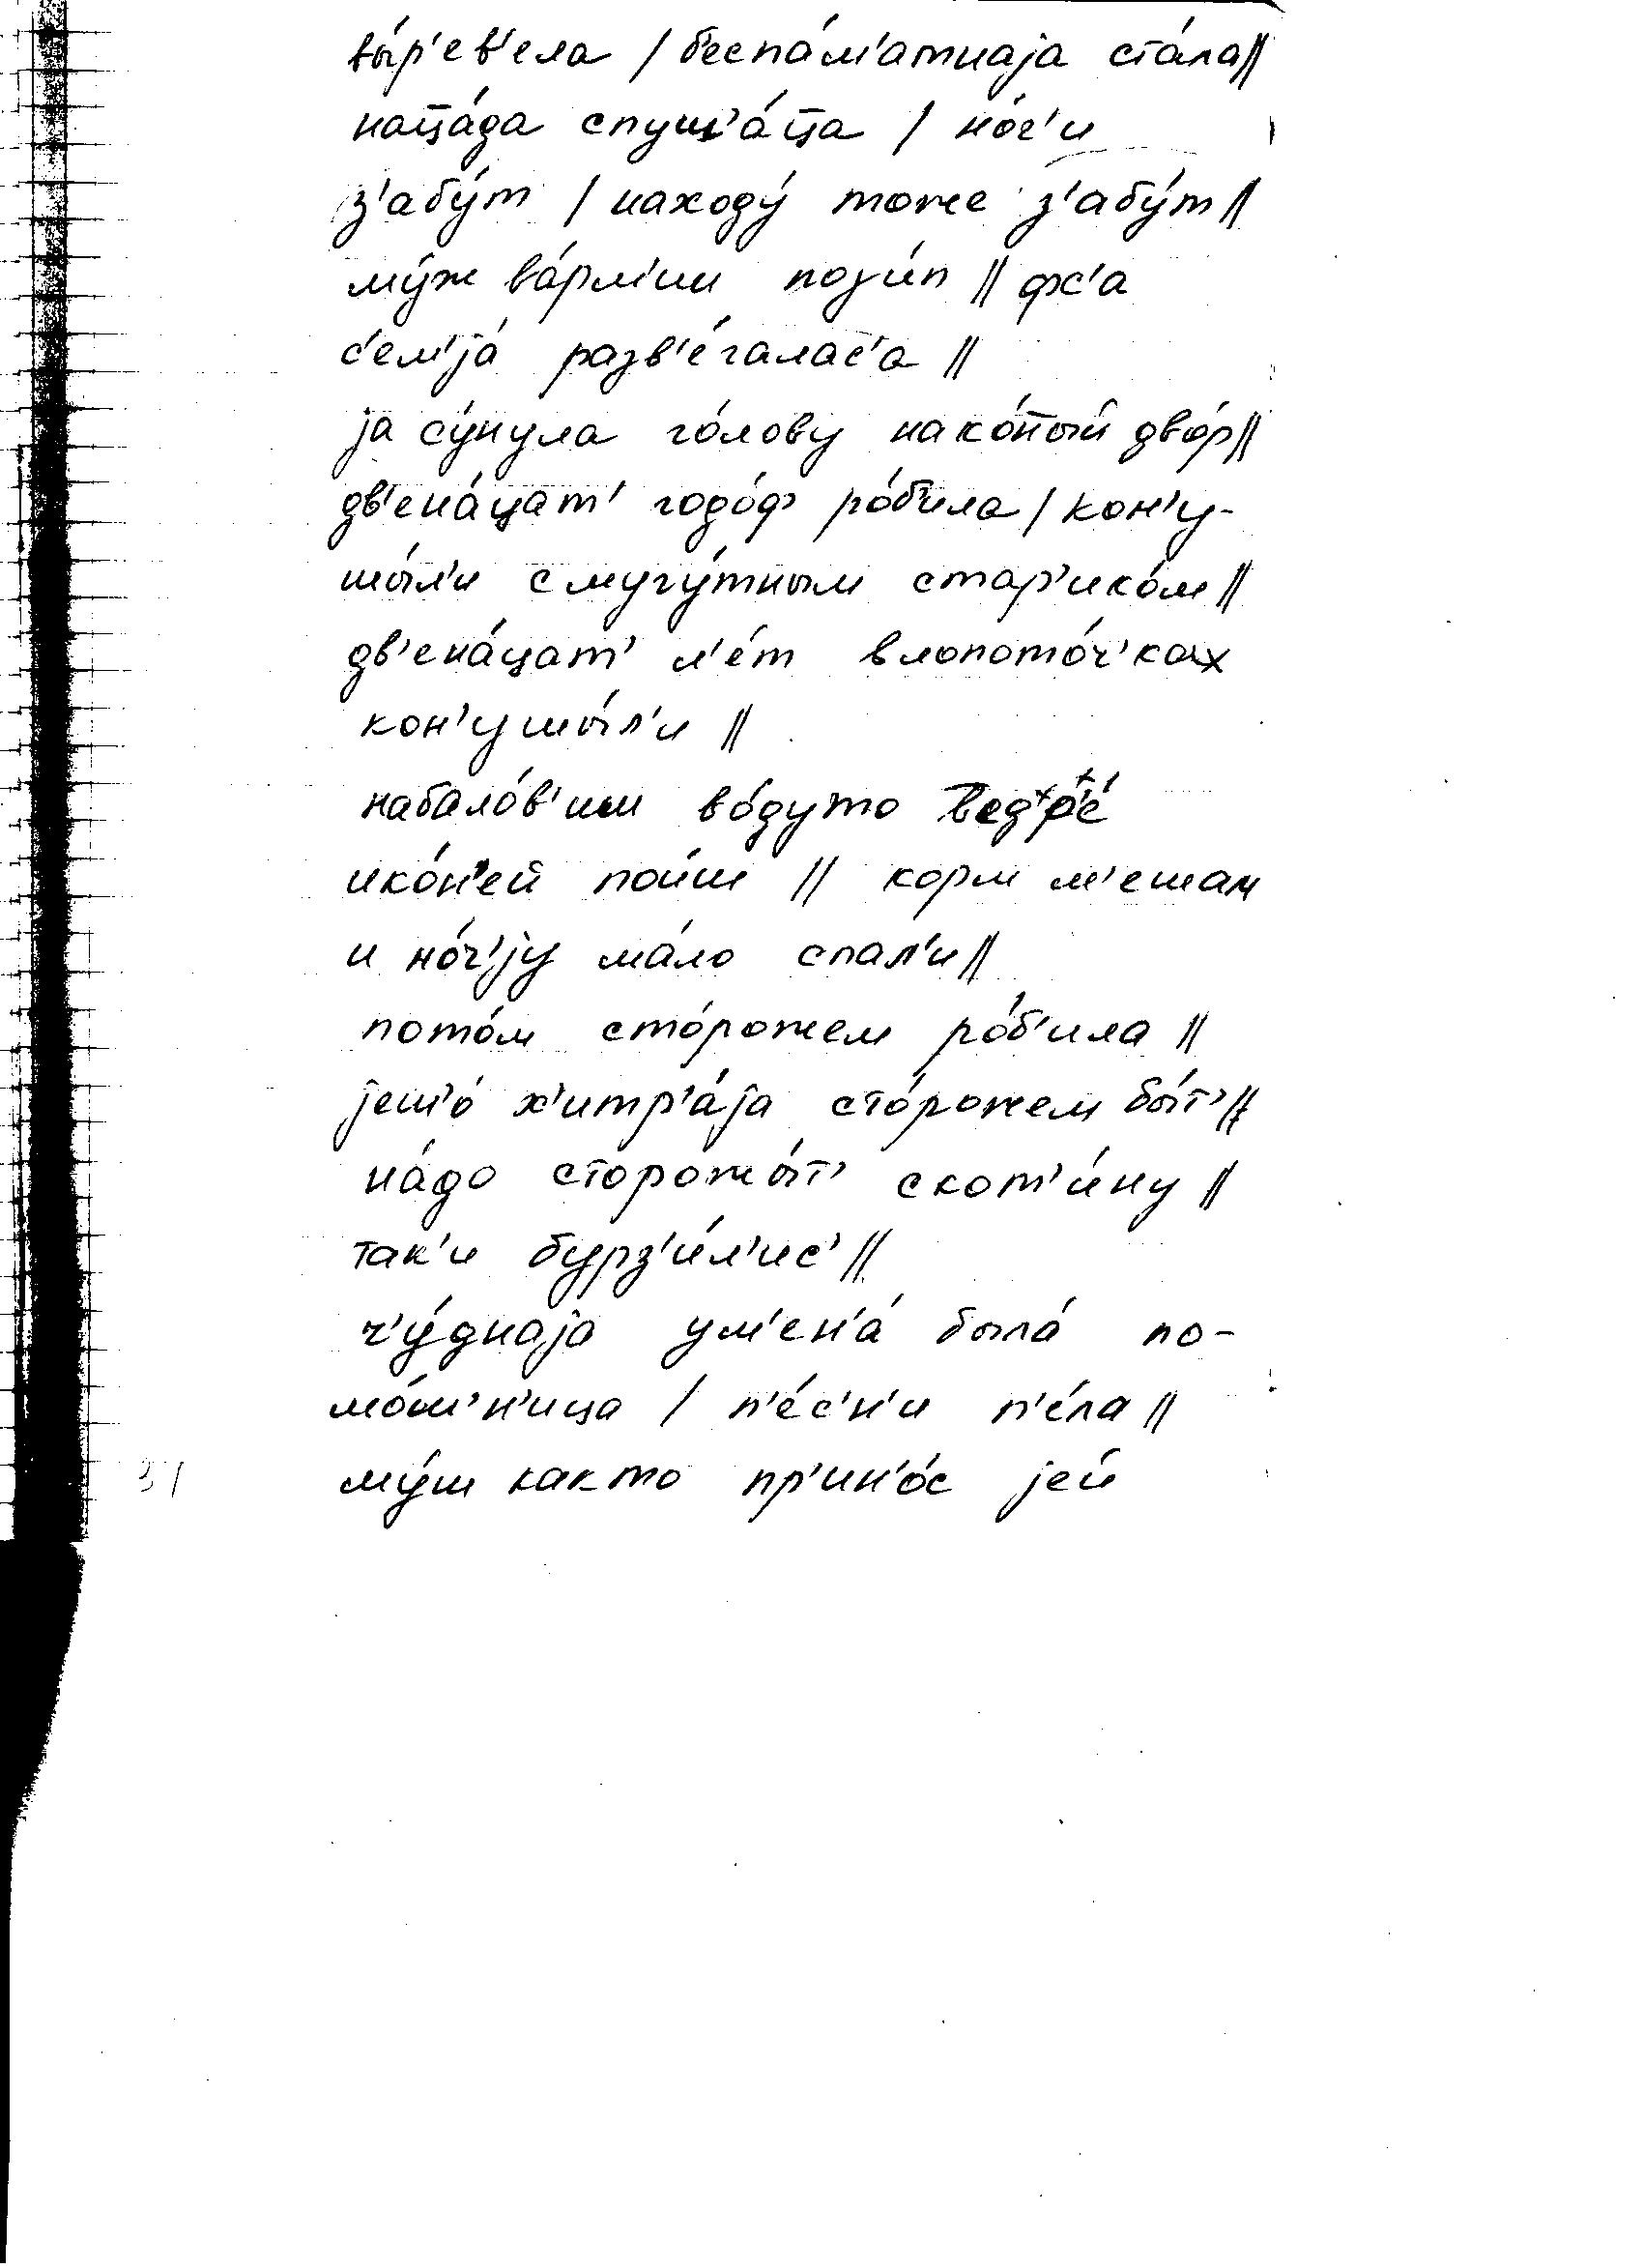 вы́р'ев'ела / б'еспа́м'атнаја ста́ла //
нац̄а́да спуш'а́ц̄а / но́г'и
з'абу́т / находу́ тоже з'абу́т //
му́ж ва́рм'ии поги́п // фс'а
с'ем'ја́ разв'е́галас'а //
ја су́нула го́лову нако́н̄ый дво́р //
дв'ена́цат' годо́ф ро́б'ила / кон'у-
шы́л'и смугу́тным стар'ико́м //
дв'ена́цат' л'е́т влопото́ч'ках
кон'ушы́л'и //
набало́в'иш во́дуто
ико́н'ей по́иш // корм м'ешам
и но́ч'ју ма́ло спал'и //
пото́м сто́рожем ро́б'ила //
јеш'о́ х'итр'а́ја сто́рожем бы́т' //
на́до сторожы́т' скот'и́ну //
так'и бурз'и́л'ис' //
ч'у́днаја ум'ен'а́ была́ по-
мо́ш'н'ица / п'е́с'н'и п'е́ла //
му́ш как то пр'ин'о́с јей
31